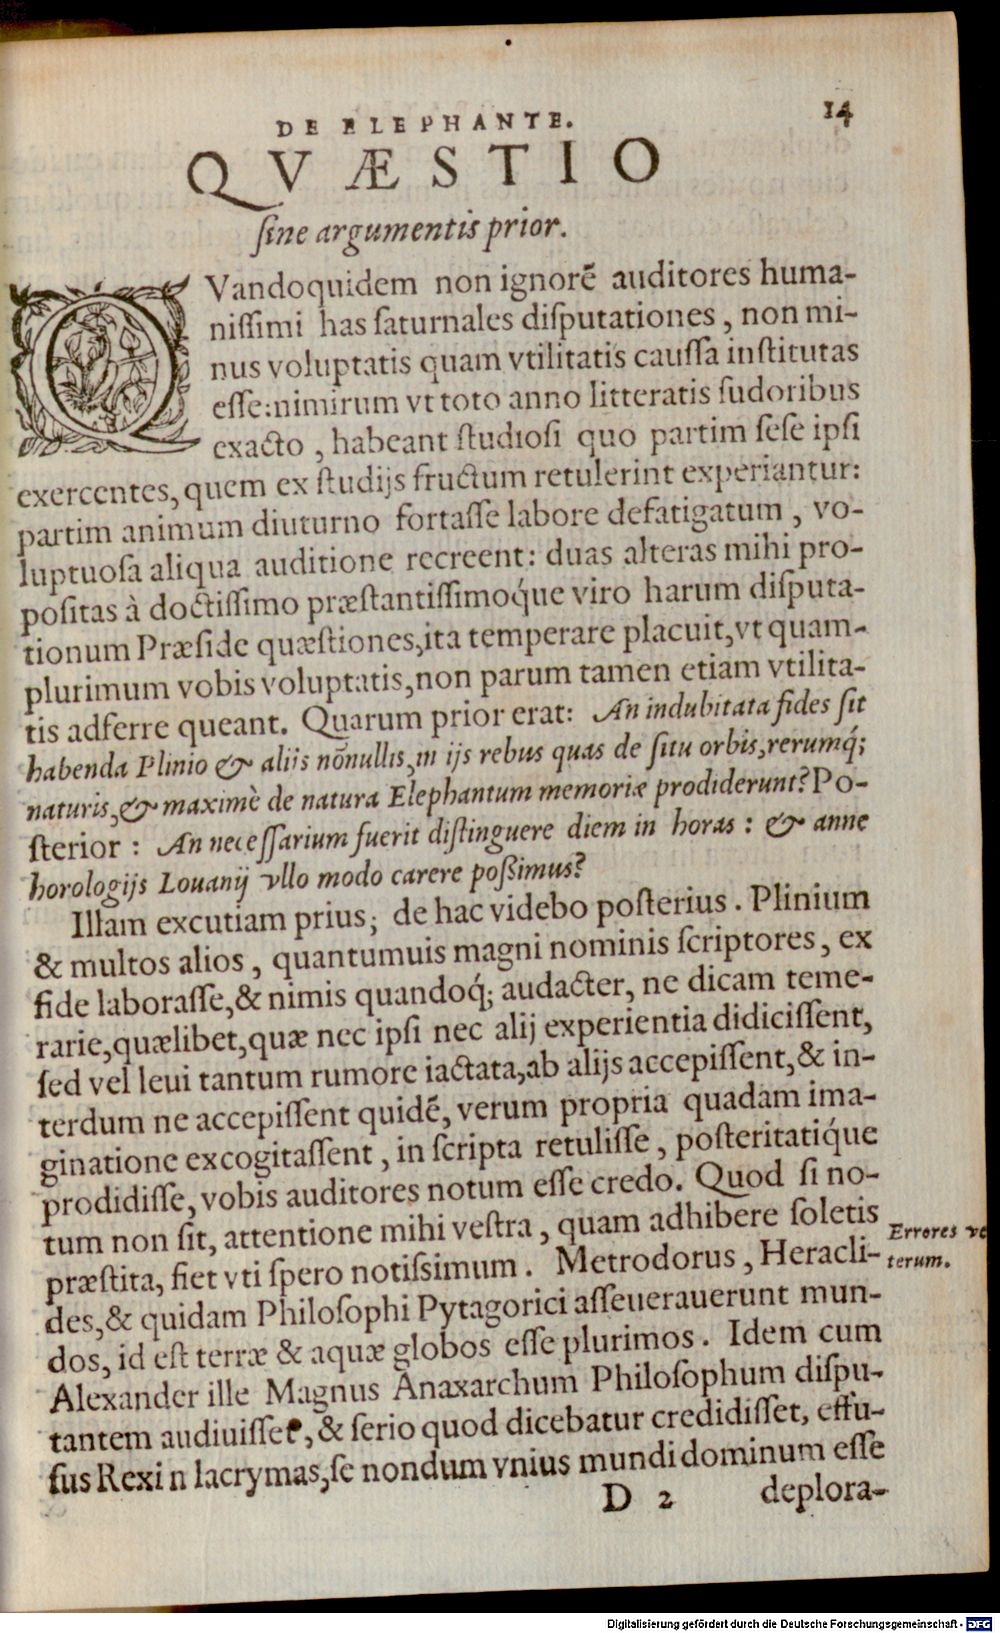 DE ELEPHANTE.
14
QVÆSTIO
sine argumentis prior.
QVandoquidem non ignorē auditores huma-
nissimi has saturnales disputationes, non mi-
nus voluptatis quam vtilitatis caussa institutas
esse:nimirum vt toto anno litteratis sudoribus
exacto, habeant studiosi quo partim sese ipsi
exercentes, quem ex studijs fructum retulerint experiantur:
partim animum diuturno fortasse labore defatigatum, vo-
luptuosa aliqua auditione recreent: duas alteras mihi pro-
positas à doctissimo præstantissimoq́ue viro harum disputa-
tionum Præside quæstiones,ita temperare placuit,vt quam-
plurimum vobis voluptatis,non parum tamen etiam vtilita-
tis adferre queant. Quarum prior erat: An indubitata fides sit
habenda Plinio & aliis nōnullis,in ijs rebus quas de situ orbis,rerumq́;
naturis,& maximè de natura Elephantum memoriæ prodiderunt? Po-
sterior: An necessarium fuerit distinguere diem in horas: & anne
horologijs Louanij vllo modo carere possimus?
Illam excutiam prius; de hac videbo posterius. Plinium
& multos alios, quantumuis magni nominis scriptores, ex
fide laborasse,& nimis quandoq́; audacter, ne dicam teme-
rarie,quælibet,quæ nec ipsi nec alij experientia didicissent,
sed vel leui tantum rumore iactata,ab alijs accepissent,& in-
terdum ne accepissent quidē, verum propria quadam ima-
ginatione excogitassent, in scripta retulisse, posteritatiq́ue
prodidisse, vobis auditores notum esse credo. Quod si no-
tum non sit, attentione mihi vestra, quam adhibere soletis
præstita, fiet vti spero notissimum. Metrodorus, Heracli-
Errores ve
terum.
des,& quidam Philosophi Pytagorici asseuerauerunt mun-
dos, id est terræ & aquæ globos esse plurimos. Idem cum
Alexander ille Magnus Anaxarchum Philosophum dispu-
tantem audiuisset, & serio quod dicebatur credidisset, effu-
sus Rex in lacrymas,se nondum vnius mundi dominum esse
D 2
deplora-
Digitalisierung gefördert durch die Deutsche Forschungsgemeinschaft - DFG